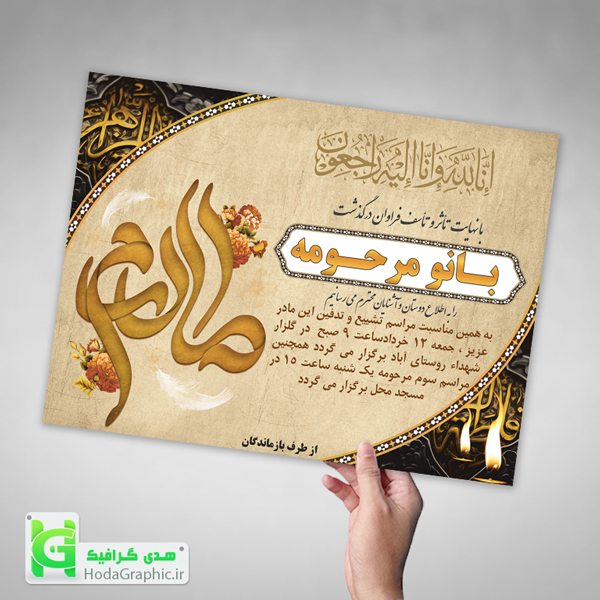 إنا لله وإنا إليه راجعون
با نهایت تاثر و تأسف فراوان درگذشت
بانو مرحومه
را به اطلاع دوستان و آشنایان محترم می رسانیم
به همین مناسبت مراسم تشییع و تدفین این مادر
عزیز ، جمعه ۱۲ خردادساعت ۹ صبح در گلزار
شهداء روستای آباد برگزار می گردد همچنین
مراسم سوم مرحومه یک شنبه ساعت ۱۵ در
مسجد محل برگزار می گردد
مادرم
از طرف بازماندگان
هدی گرافیک
HodaGraphic.ir